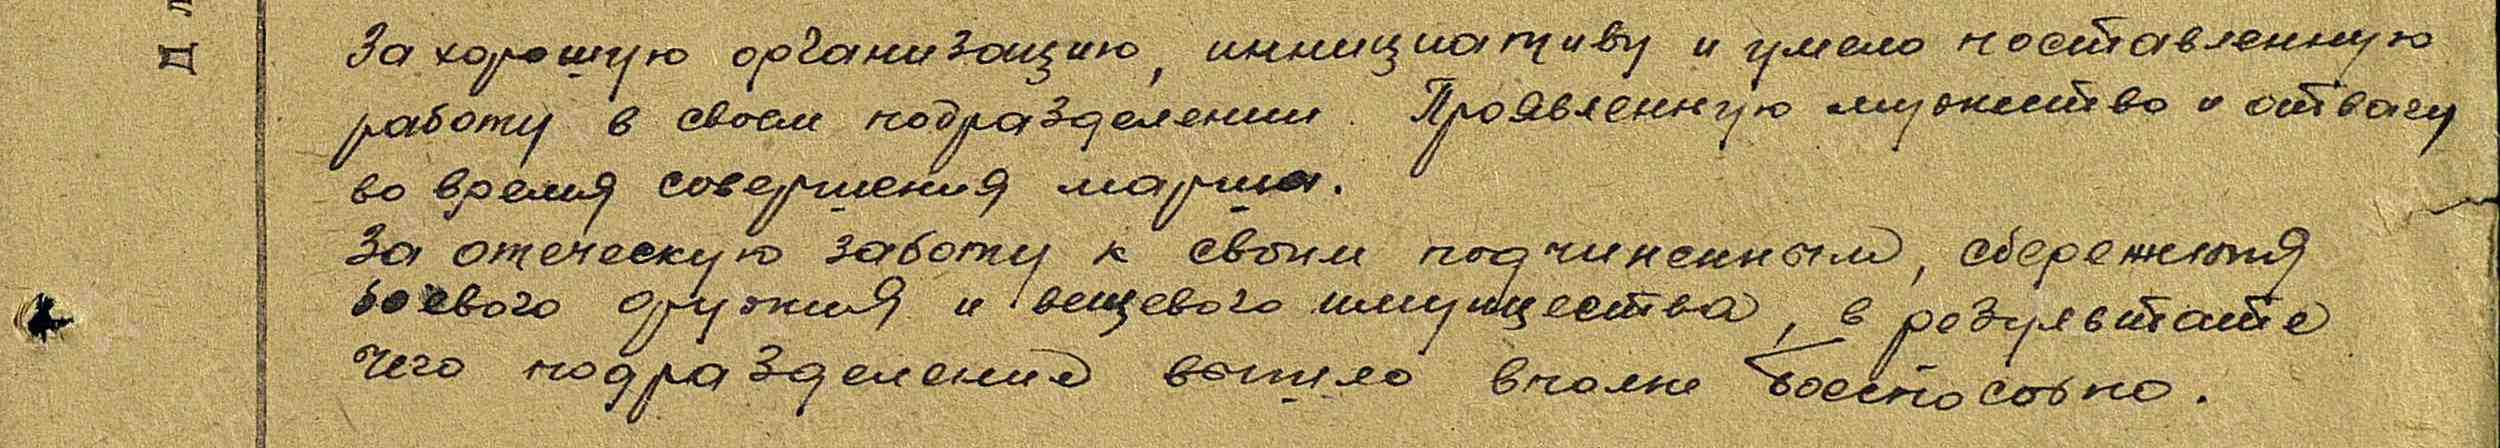 За хорошую организацию, иннициативу и умело поставленную
работу в своем подразделении. Проявленную мужество и отвагу
во время совершения марша.
За отеческую заботу к своим подчиненным, сбережения
боевого оружия и вещевого имущества, в результате
чего подразделение вышло вполне боеспособно.